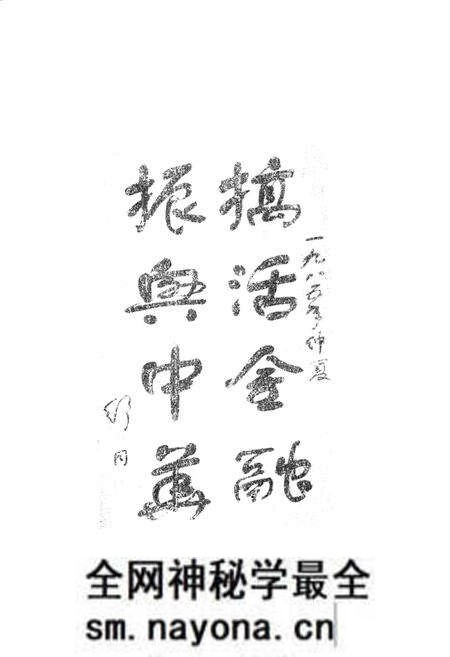 一九八五年仲夏
搞活金融
振興中華
舒同
全网神秘学最全
sm.nayona.cn